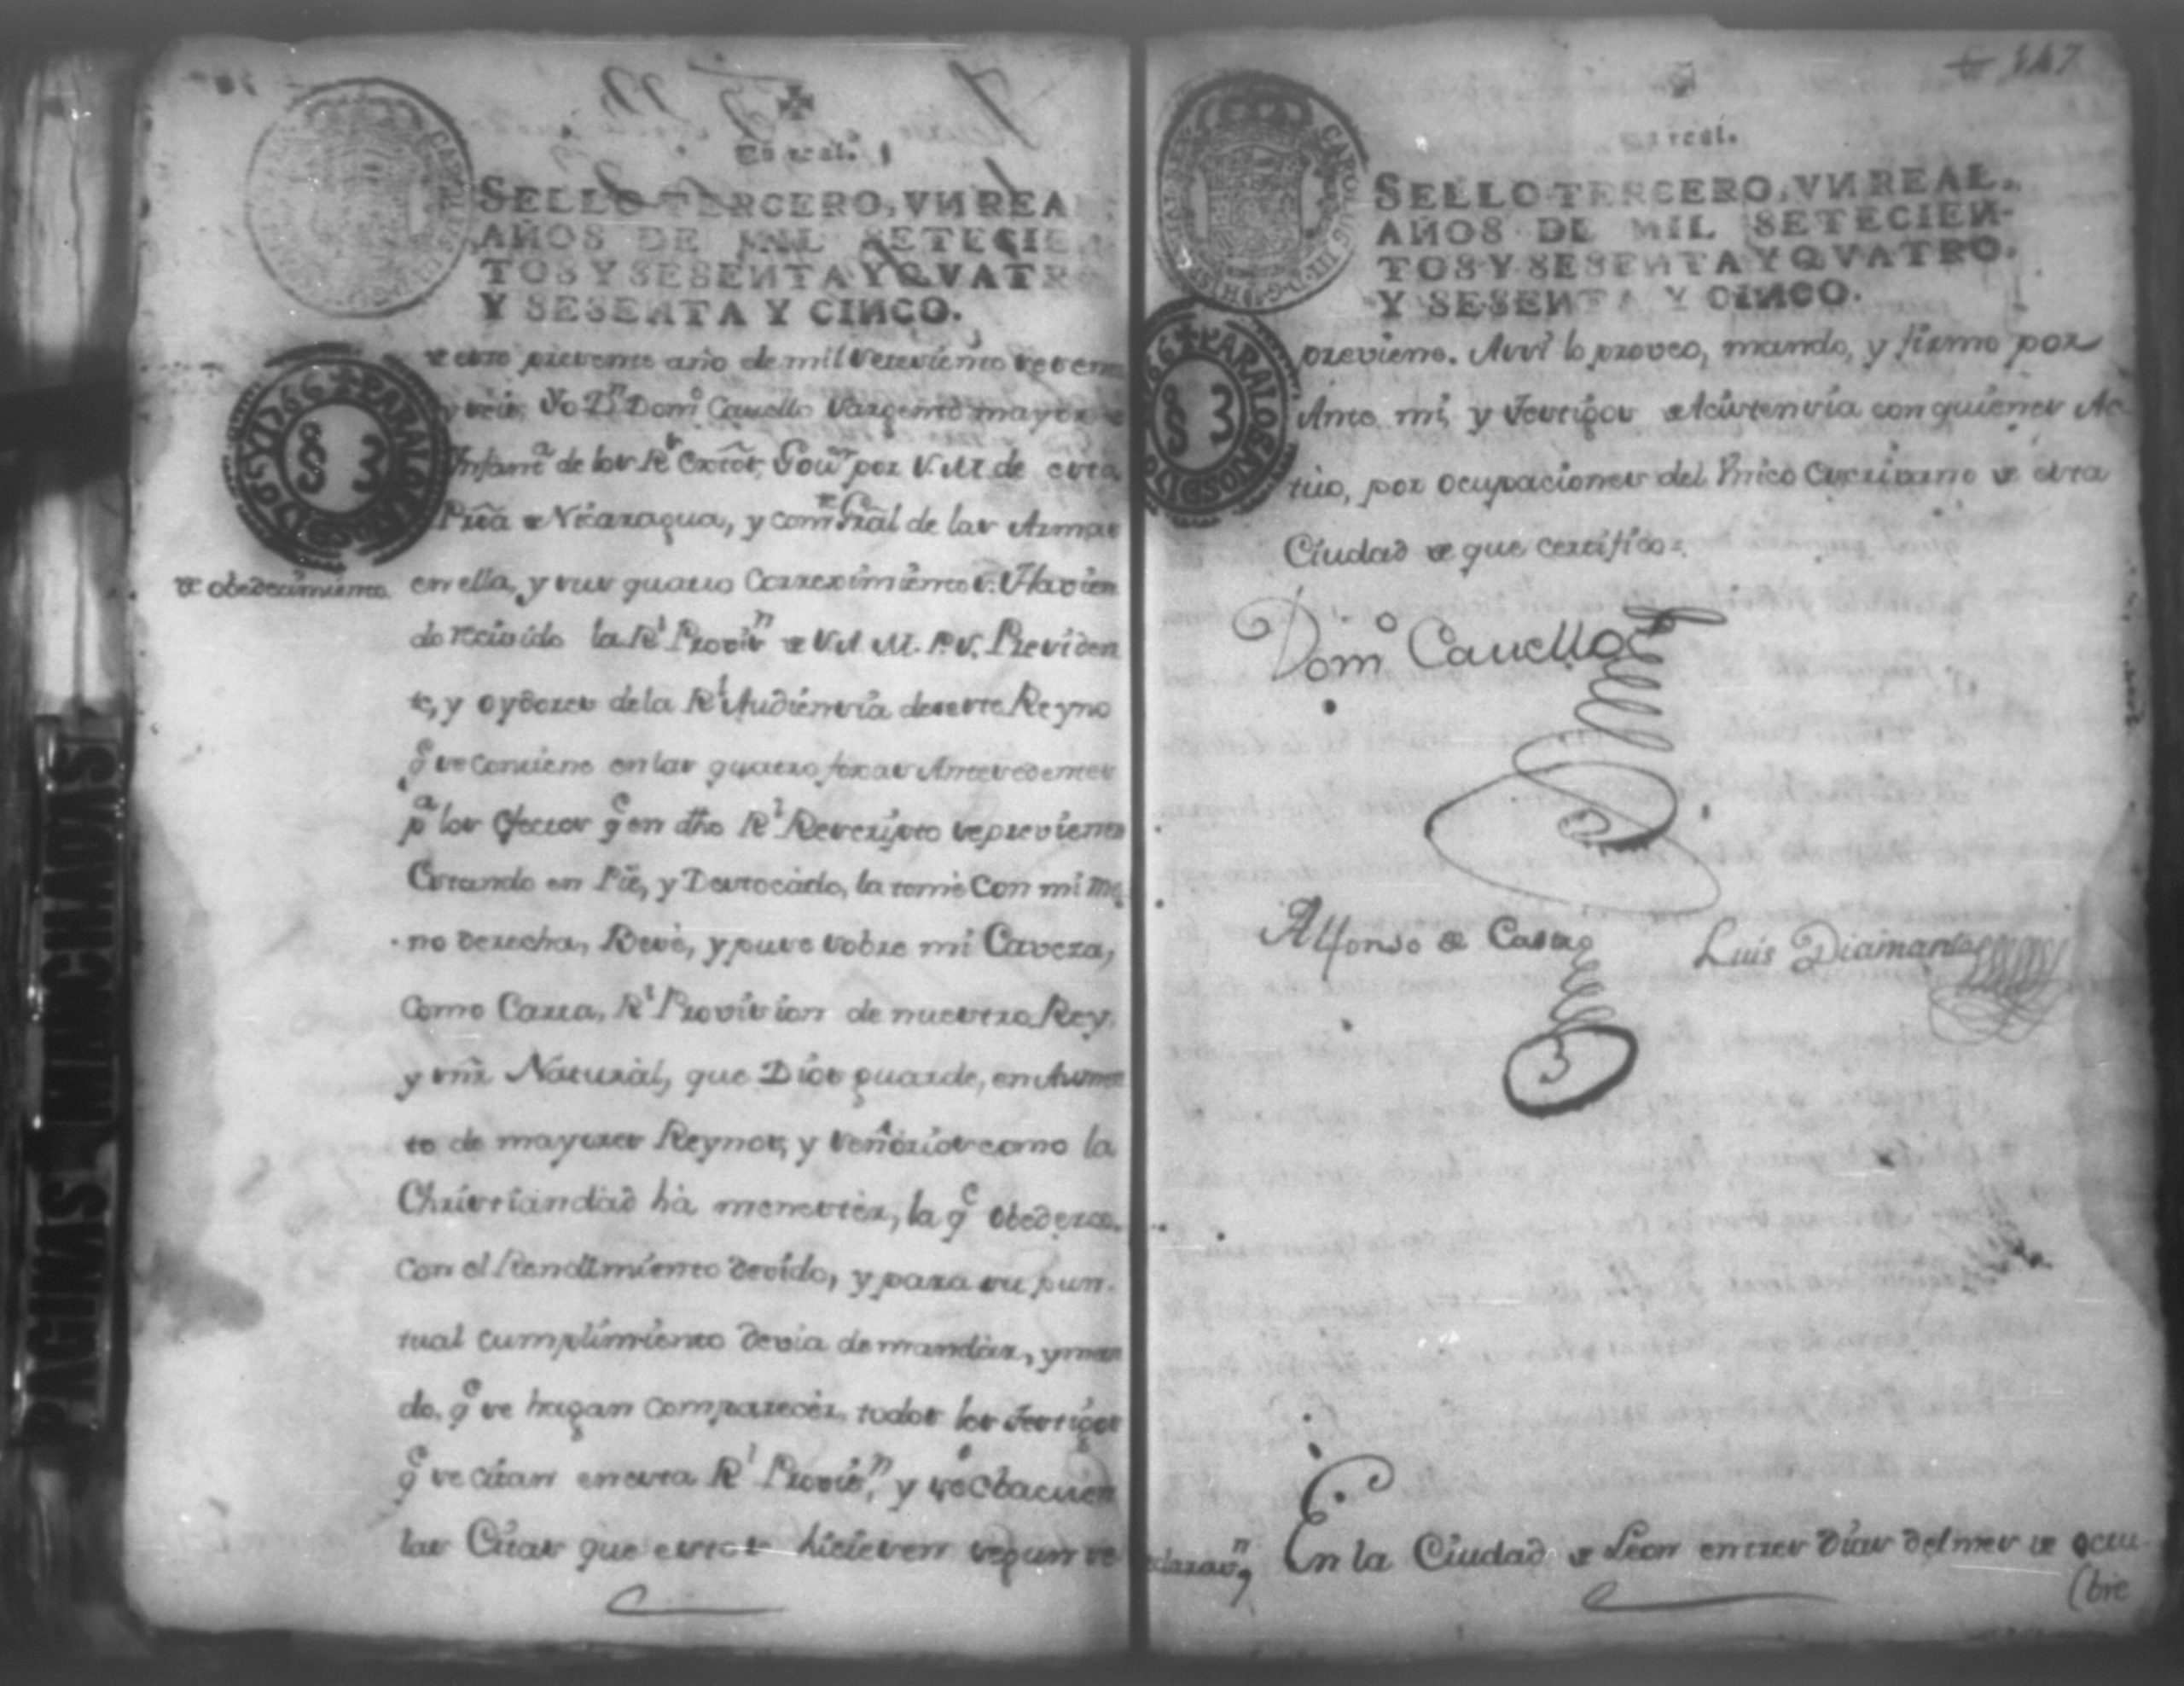 Un real.
SELLO TERCERO, VN REA
AÑOS DE MIL SETECIE
TOS Y SESENTA Y QVATR
Y SESENTA Y CINCO.
PARA LOS AÑOS DE 1765 Y 1766
§ 3
de este presente año de mil setesientos sesen
y seis. Yo Dn Domo Cauello Sargento mayor de
Infanta de los Rs Exctos, Gour por S. M. de esta
Proa de Nicaragua, y comte Gral de las Armas
de obedecimiento
en ella, y sus quatro Correximientos. Havien
do recivido la Rl Provisn de S. A. M. P. S. Presiden
te, y oydores de la Rl Audiensia de este Reyno
qe se contiene en las quatro foxas Antesedentes
pa los efectos qe en dho Rl Rescripto se previenen
Estando en Pie, y Destocado, la tomè con mi ma
no derecha, Besè, y puse sobre mi Caveza,
como Carta, Rl Provision de nuestro Rey,
y sñr Natural, que Dios guarde, en Aumen
to de mayores Reynos, y señorios como la
Christiandad hà menester, la qe obedezco
con el Rendimiento devido, y para su pun-
tual cumplimiento devia de mandàr, y man
do, qe se hagan comparecèr, todos los testigos
qe se citan en esta Rl Provisn, y se evacuen
las Citas que estos hicieren segun se
147
Un real.
SELLO TERCERO, VN REAL,
AÑOS DE MIL SETECIEN-
TOS Y SESENTA Y QVATRO,
Y SESENTA Y CINCO.
CAROLUS III D.G. HISP
PARA LOS AÑOS DE 1765 Y 1766
§ 3
previene. Assi lo proveo, mando, y firmo por
Ante mi, y testigos de Asistensia con quienes Ac
tùo, por ocupaciones del Vnico Escrivano de esta
Ciudad de que certifico=
Domo Cauello
Alfonso de Castro
Luis Diamante
En la Ciudad de Leon en tres dias del mes de octu
(bre
PAGINAS MANCHADAS